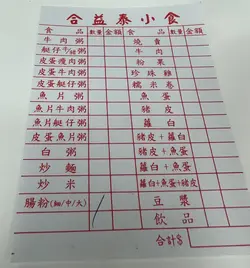 合益泰小食
食品 數量 金額 食品 數量 金額
牛肉粥 燒賣
艇仔粥 牛肉
皮蛋瘦肉粥 粉果
皮蛋牛肉粥 珍珠雞
皮蛋艇仔粥 糯米卷
魚片粥 魚蛋
魚片牛肉粥 豬皮
魚片艇仔粥 蘿白
皮蛋魚片粥 豬皮+蘿白
白粥 豬皮+魚蛋
炒麵 蘿白+魚蛋
炒米 蘿白+魚蛋+豬皮
腸粉(細/中/大) / 豆漿
飲品
合計$